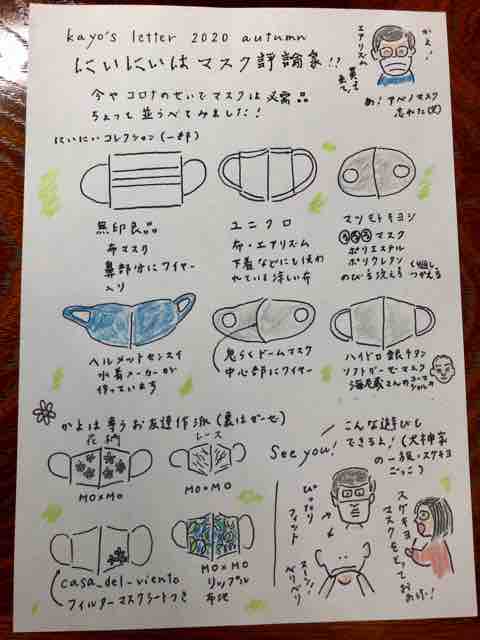 kayo's letter 2020 autumn
にいにいはマスク評論家!!
かよ!
エアリズム
買って
来て。
め!アベノマスク
忘れた(笑)
今やコロナのせいでマスクは必需品
ちょっと並うべてみました!
にいにいコレクション(一部)
無印良品
布マスク
鼻部分にワイヤー
入り
ユニクロ
布・エアリズム
下着などにも使わ
れている涼しい布
マツモトキヨシ
マスク
ポリエステル
ポリウレタン
のびる洗える
くり返し
つかえる
ヘルメットセンスイ
水着メーカーが
作っています
鬼らくドームマスク
中心部にワイヤー
ハイドロ銀チタン
ソフトガーゼマスク
海老蔵さんのコマー
シャルの
かよは専らお友達作派(裏はガーゼ)
花柄
MO×MO
レース
MO×MO
casa_del_viento
フィルターマスクシートつき
MO×MO
リップル
布地
See you!
こんな遊びも
できるよ!(犬神家
の一族・スケキヨ
ごっこ)
ぴったり
フィット
スーッ!
ベリベリ
スケキヨ
マスクをとって
おお!!